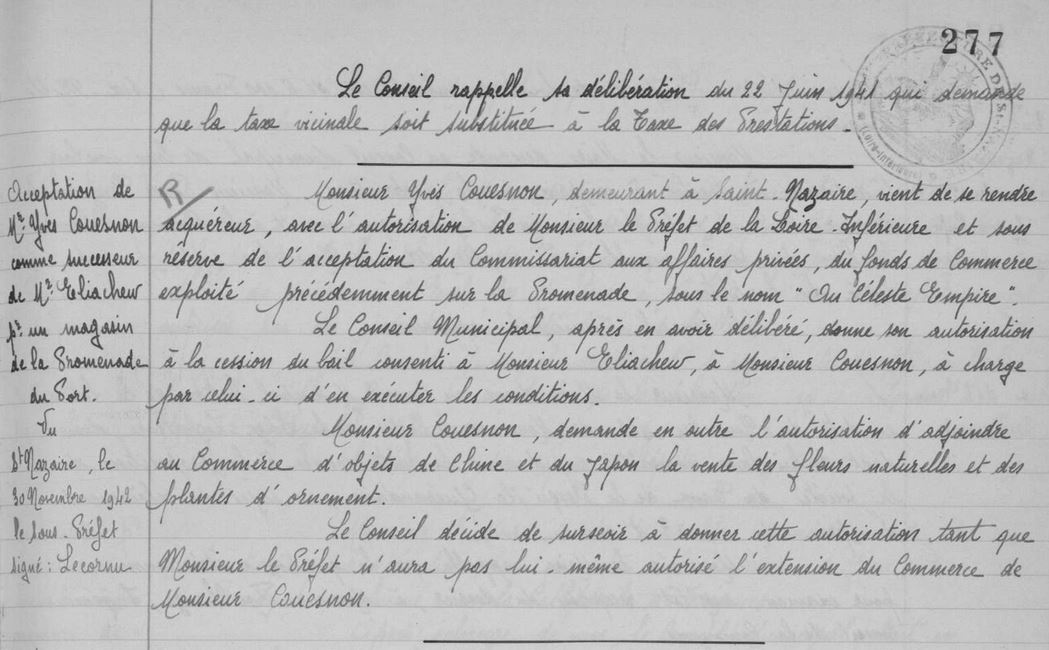 277
Le Conseil rappelle sa délibération du 22 Juin 1941 qui demande
que la taxe vicinale soit substituée à la Taxe des Prestations.
Acceptation de
Mr. Yves Couesnon
comme successeur
de Mr. Eliachew
pr. un magasin
de la Promenade
du Port.
Vu
St Nazaire, le
30 Novembre 1942
le Sous-Préfet
signé: Lecornu
R
Monsieur Yves Couesnon, demeurant à Saint-Nazaire, vient de se rendre
acquéreur, avec l'autorisation de Monsieur le Préfet de la Loire-Inférieure et sous
réserve de l'acceptation du Commissariat aux affaires privées, du fonds de Commerce
exploité précédemment sur la Promenade, sous le nom "Au Céleste Empire".
Le Conseil Municipal, après en avoir délibéré, donne son autorisation
à la cession du bail consenti à Monsieur Eliachew, à Monsieur Couesnon, à charge
par celui-ci d'en exécuter les conditions.
Monsieur Couesnon, demande en outre l'autorisation d'adjoindre
au Commerce d'objets de Chine et du Japon la vente des fleurs naturelles et des
plantes d'ornement.
Le Conseil décide de surseoir à donner cette autorisation tant que
Monsieur le Préfet n'aura pas lui-même autorisé l'extension du Commerce de
Monsieur Couesnon.